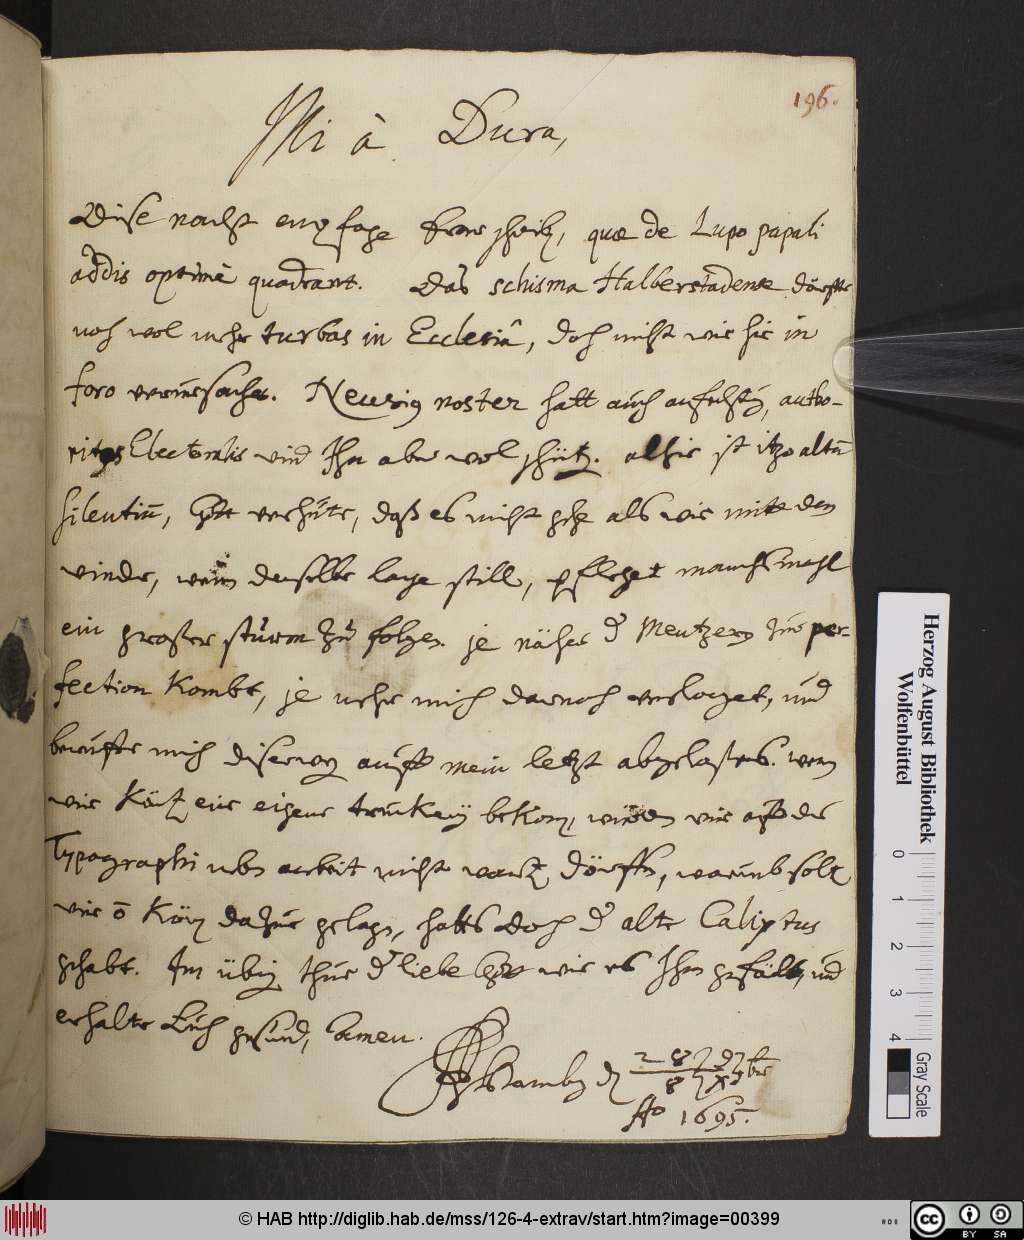 196.
Mi à Dura,
Dise nacht empfange Ewer schreiben, quæ de Lupo papali
addis optimè quadrant. Das schisma Halberstadense dörffte
noch wol mehr turbas in Ecclesiâ, doch nicht wie hie in
foro verursachen. Neusig noster hatt auch anfechtung, autho-
ritas Electoralis wird Ihn aber wol schützen. alhie ist itzo altum
silentium, Gott verhüte, daß es nicht gehe als wie mitt den
winde, wenn derselbe lange still, pfleget manchsmahl
ein großer sturm zu folgen. je näher d Meutzern zur per-
fection kombt, je mehr mich darnach verlanget, und
beruffe mich auff mein letzt abgelaßenes. wenn
wir eine eigene truckerey bekommen, würden wir auff des
Typographi neben arbeit nicht warten dörffen, warumb solten
wir ō dazu gelangen, hatts doch d alte Caliptus
gehabt. Im übrigen thue d liebe Gott wie es Ihm gefält, und
erhalte Euch gesund, Amen.
Hamb d 28 7br
8 Xbr
Ao 1695.
Herzog August Bibliothek
Wolfenbüttel
0 1 2 3 4
Gray Scale
© HAB http://diglib.hab.de/mss/126-4-extrav/start.htm?image=00399
cc BY SA